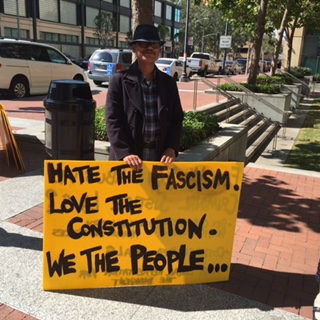 HATE THE FASCISM.
LOVE THE
CONSTITUTION.
WE THE PEOPLE...